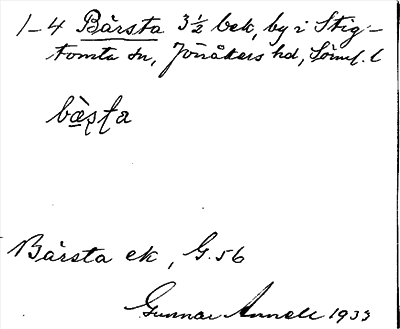 1-4 Bärsta 3 ½ bek, by i Stig-
tomta sn, Jönåkers hd, Söml. l
bæ̀ʂʈa
Bärsta ek, G. 56
Gunnar Annell 1933